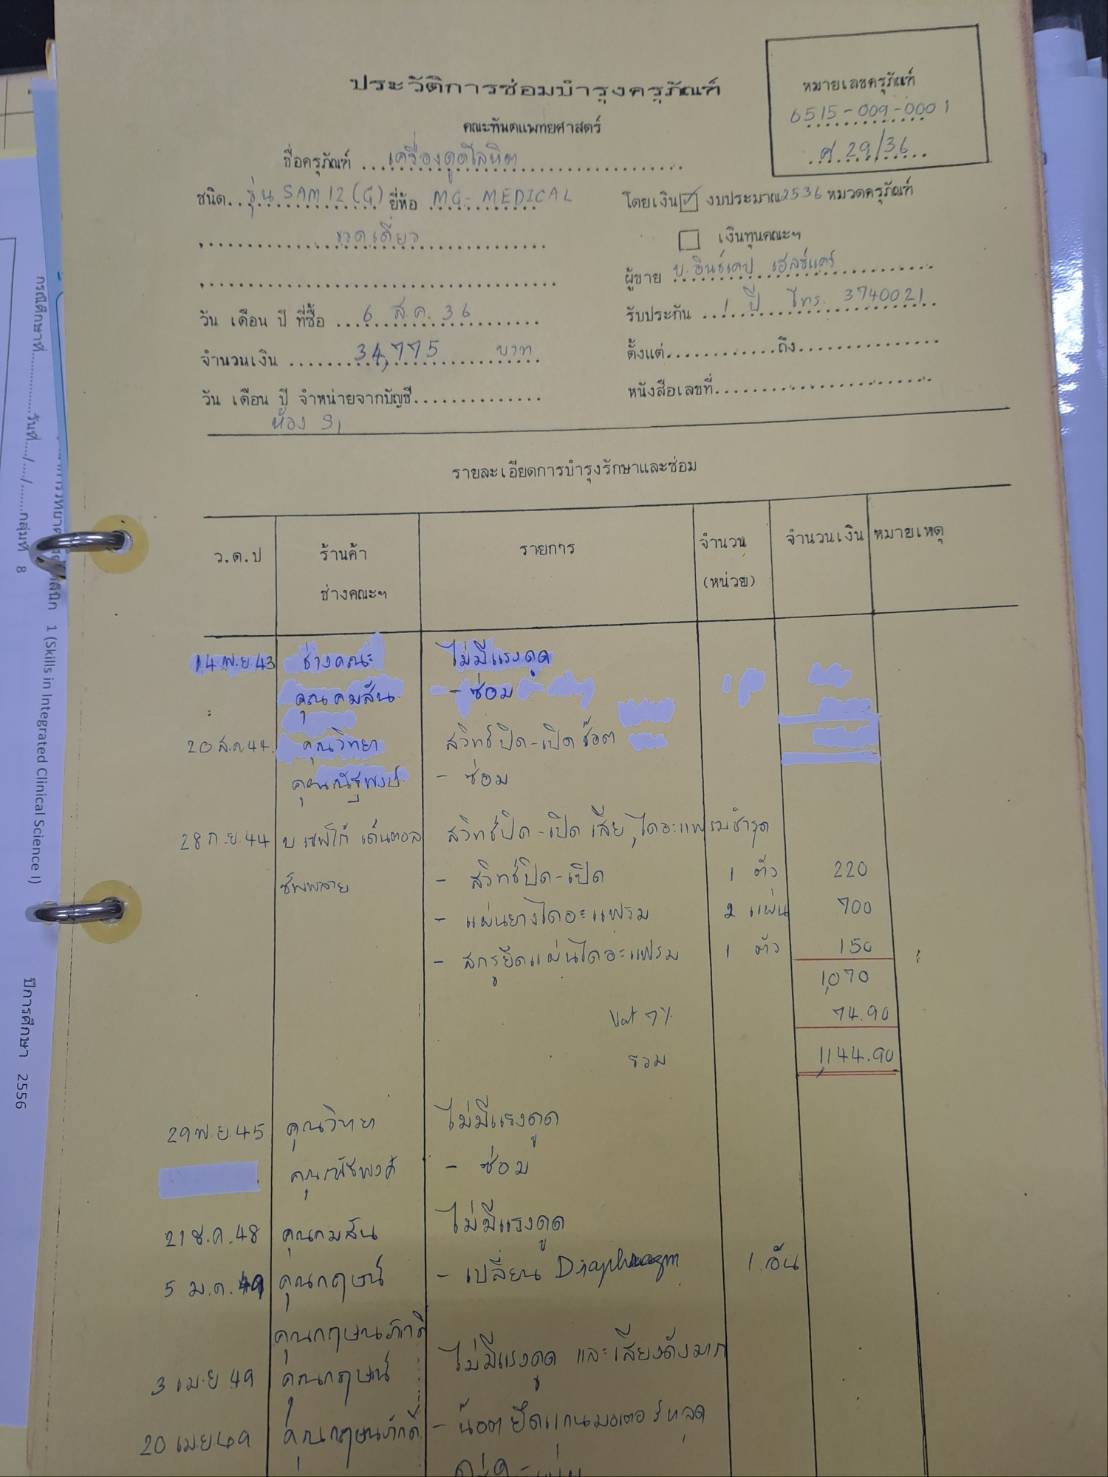 ประวัติการซ่อมบำรุงครุภัณฑ์
คณะทันตแพทยศาสตร์
หมายเลขครุภัณฑ์
6515-009-0001
ศ.29/36
ชื่อครุภัณฑ์ เครื่องดูดโลหิต
ชนิด รุ่น SAM 12 (G) ยี่ห้อ MG-MEDICAL
ขวดเดียว
โดยเงิน ☑ งบประมาณ 2536 หมวดครุภัณฑ์
☐ เงินทุนคณะฯ
ผู้ขาย บ.อินช์เคป เฮลธ์แคร์
วัน เดือน ปี ที่ซื้อ 6 ส.ค. 36
รับประกัน 1 ปี โทร. 3740021
จำนวนเงิน 34,775 บาท
ตั้งแต่ ถึง
วัน เดือน ปี จำหน่ายจากบัญชี
หนังสือเลขที่
ห้อง S1
รายละเอียดการบำรุงรักษาและซ่อม
ว.ด.ป ร้านค้า ช่างคณะฯ รายการ จำนวน (หน่วย) จำนวนเงิน หมายเหตุ
14 พ.ย 43 ช่างคณะ ไม่มีแรงดูด
คุณคมสัน - ซ่อม
20 ส.ค 44 คุณวิทยา สวิทช์ปิด-เปิด ช๊อต
คุณณัฐพงษ์ - ซ่อม
28 ก.ย. 44 บ.เซฟโก้ เด็นตอล สวิทช์ปิด-เปิด เสีย, ไดอะแฟรมชำรุด
ซัพพลาย - สวิทช์ปิด-เปิด 1 ตัว 220
- แผ่นยางไดอะแฟรม 2 แผ่น 700
- สกรูยึดแผ่นไดอะแฟรม 1 ตัว 150
1,070
Vat 7% 74.90
รวม 1,144.90
29 พ.ย. 45 คุณวิทยา ไม่มีแรงดูด
- ซ่อม
21 ธ.ค. 48 คุณคมสัน ไม่มีแรงดูด
5 ม.ค. 49 คุณกฤษน์ - เปลี่ยน Diaphragm 1 อัน
คุณกฤษนภักดิ์
3 เม.ย 49 คุณกฤษน์ ไม่มีแรงดูด และเสียงดังมาก
20 เมย 49 คุณกฤษนภักดิ์ - น๊อตยึดแกนมอเตอร์หลุด
กรณีศึกษาที่ วันที่ / / กลุ่มที่ 8
1 (Skills in Integrated Clinical Science I)
ปีการศึกษา 2556